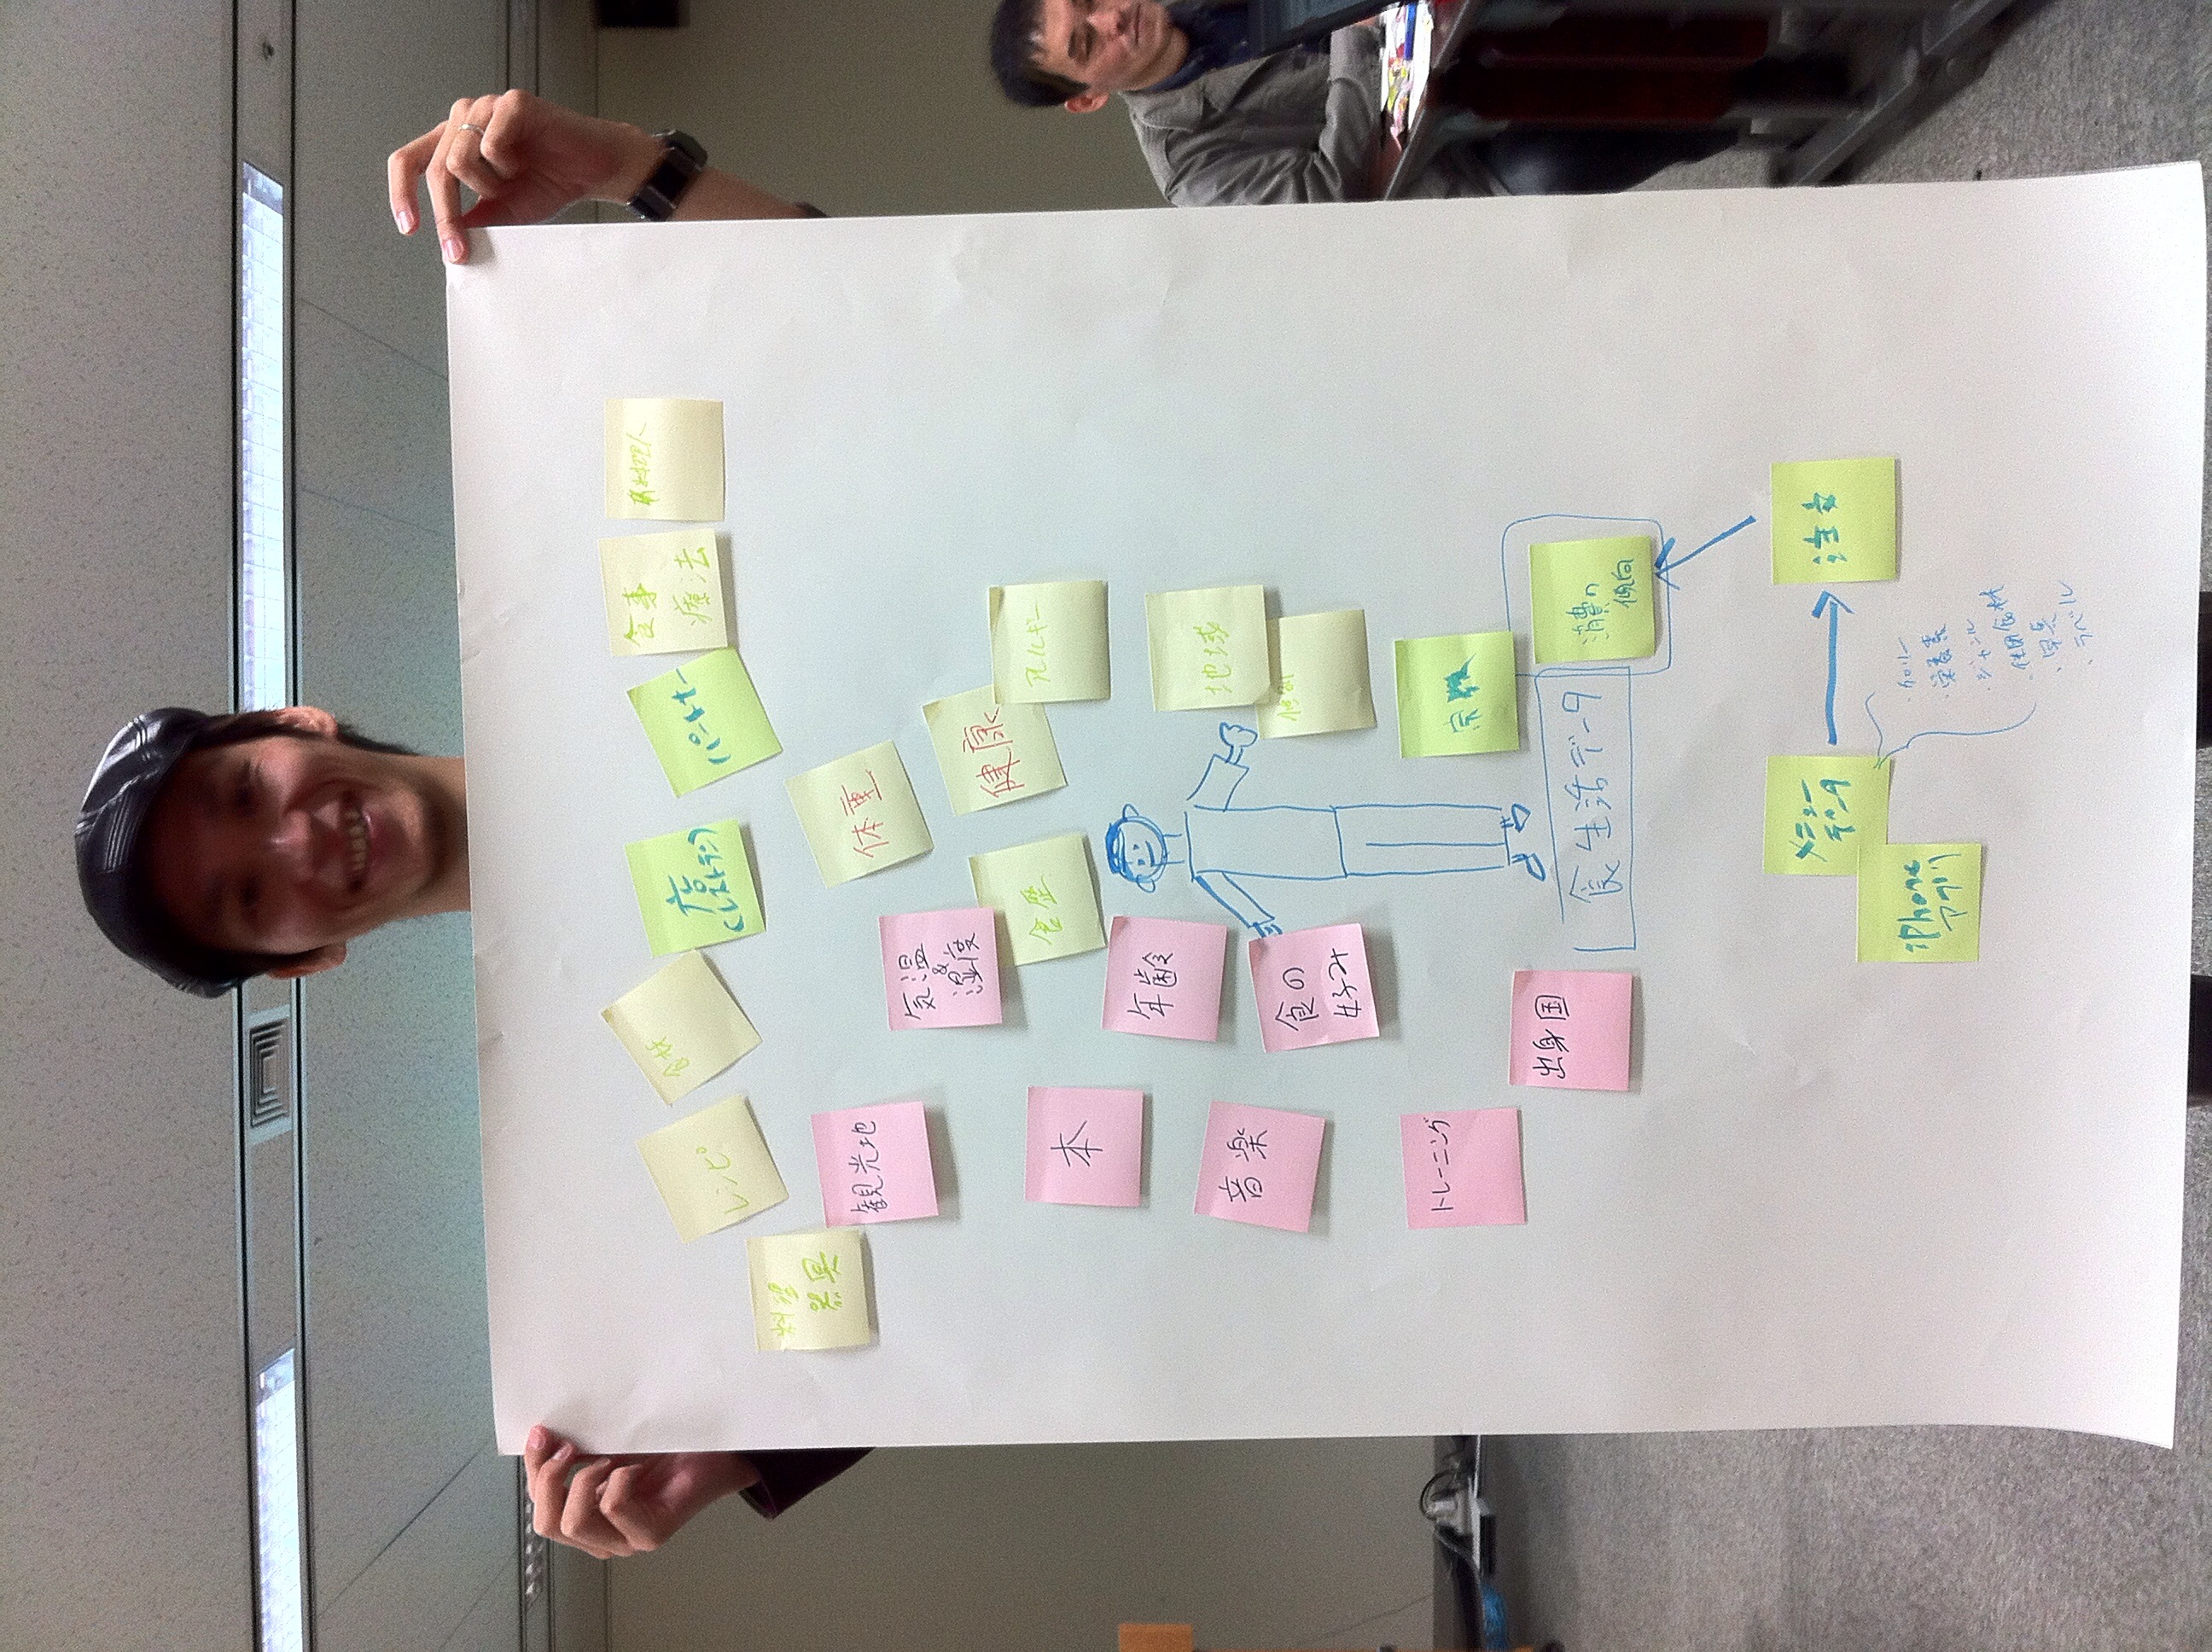 レシピ
食材
店
(レストラン)
パートナー
食事
療法
料理
器具
観光地
体重
気温
&
湿度
健康
食歴
アレルギー
本
年齢
地域
音楽
性別
食の
好み
トレーニング
宗教
出身国
食生活データ
消費の
傾向
メニュー
データ
注文
iPhone
アプリ
・カロリー
・栄養素
・ジャンル
・使用食材
・写真
・ラベル